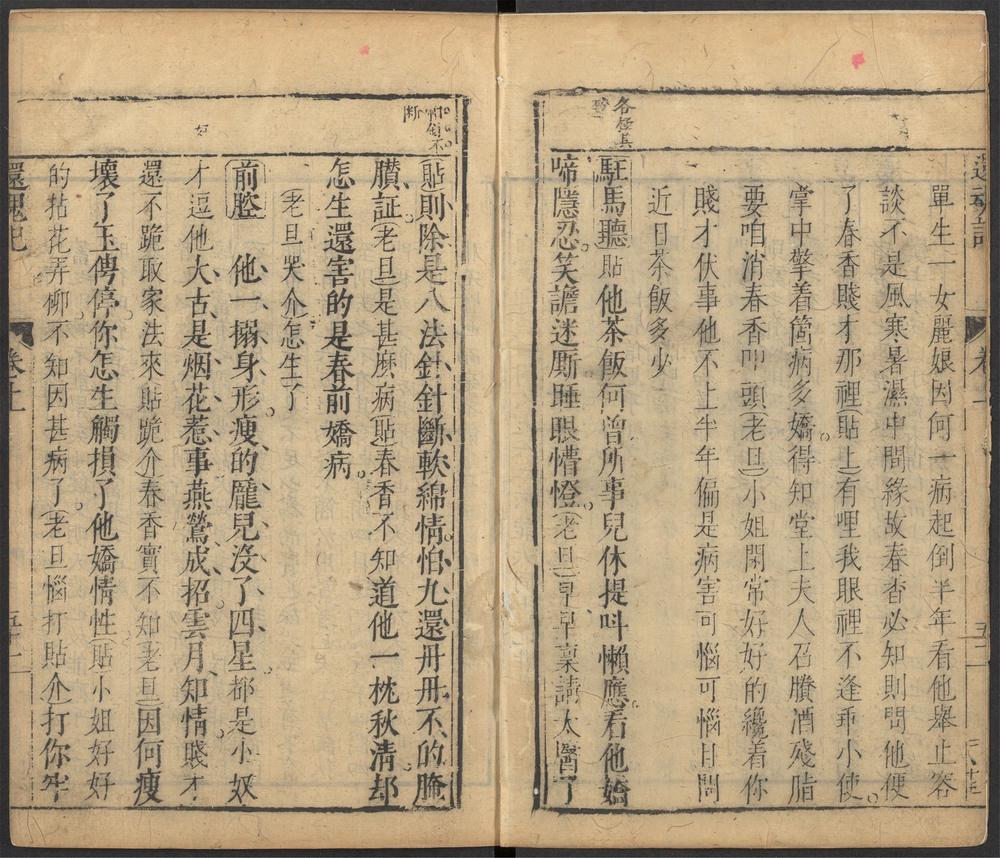 還魂記
卷上
單生一女麗娘因何一病起倒半年看他舉止容
談不是風寒暑濕中間緣故春香必知則問他便
了春香賤才那裡(貼上)有哩我眼裡不逢乖小使
掌中擎着箇病多嬌得知堂上夫人召賸酒殘脂
要咱消春香叩頭(老旦)小姐閑常好好的纔着你
賤才伏事他不上半年偏是病害可惱可惱且問
近日茶飯多少
駐馬聽貼他茶飯何曾所事兒休提呌懶應看他嬌
啼隱忍笑譫迷厮睡眼懵憕(老旦)早早稟請太醫了
各極其
(貼)則除是八法針針斷軟綿情怕九還丹丹不的腌
臢証(老旦)是甚麽病(貼)春香不知道他一枕秋清却
怎生還害的是春前嬌病
(老旦哭介)怎生了
前腔 他一搦身形瘦的龐兒沒了四星都是小奴
才逗他大古是烟花惹事燕鶯成招雲月知情賤才
還不跪取家法來貼跪介春香實不知(老旦)因何瘦
壞了玉俜停你怎生觸損了他嬌情性(貼)小姐好好
的拈花弄柳不知因甚病了(老旦惱打貼介)打你牢
還魂記
卷上